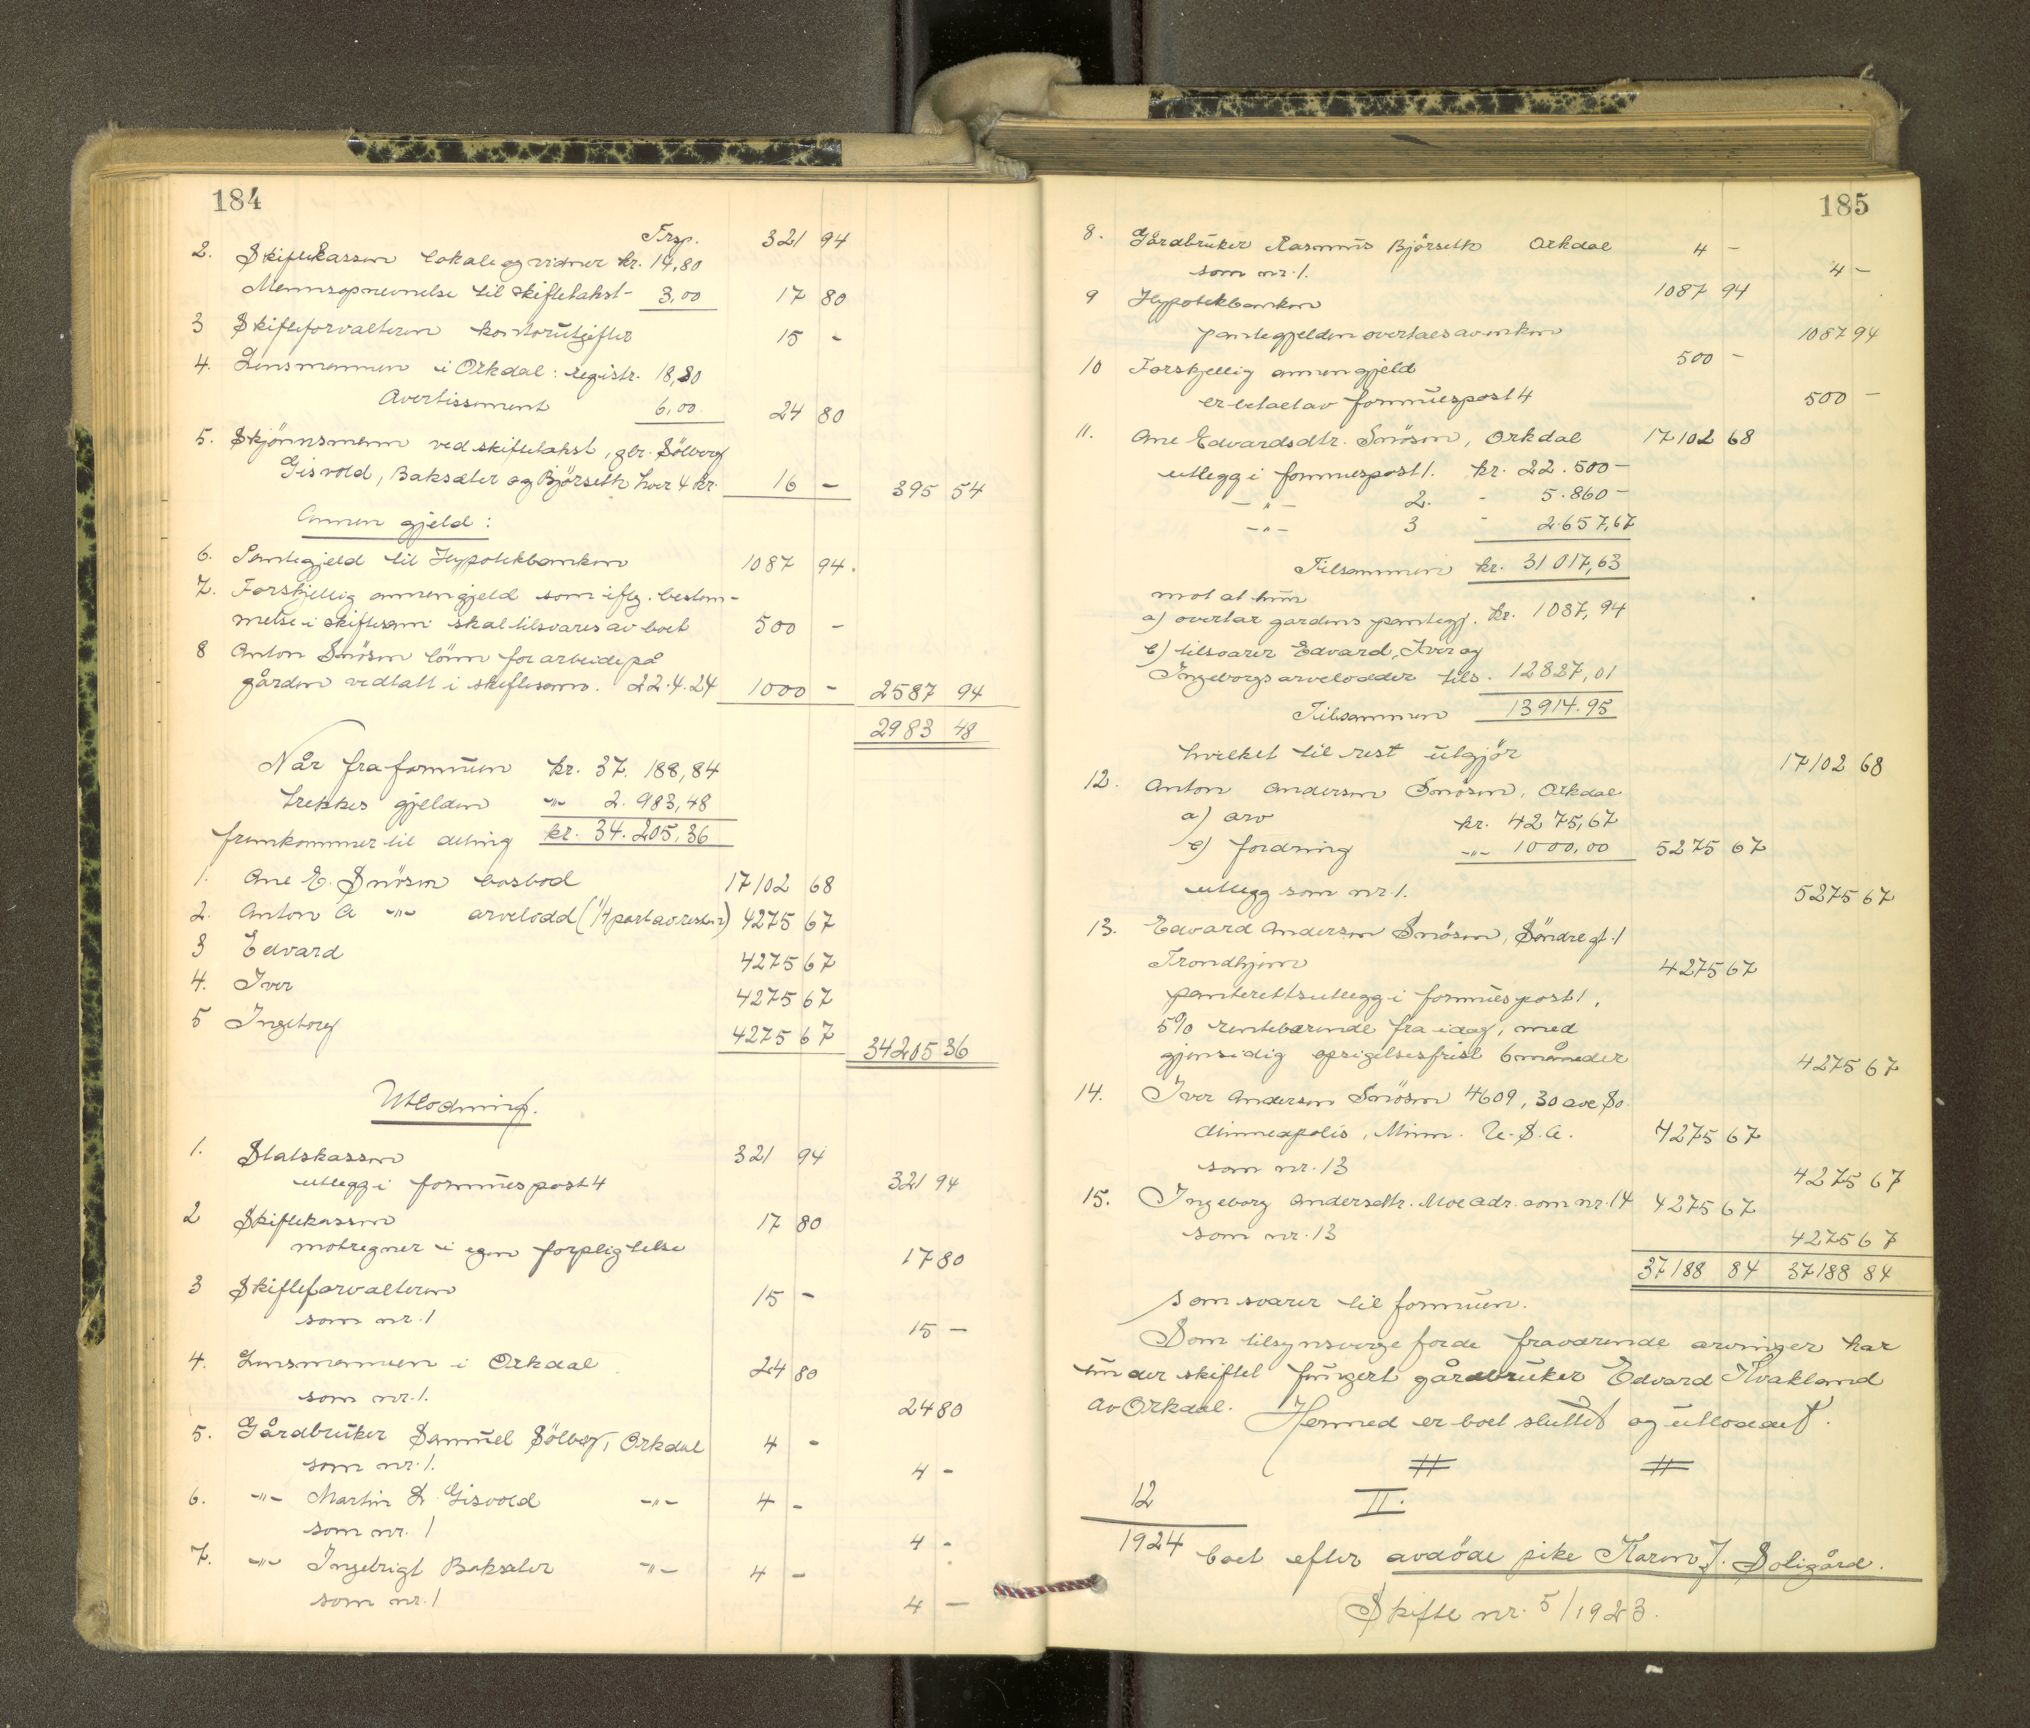 184
Trsp. 321 94
2. Skiftekassen lokale og vidner kr. 14,80
Mennsopnevnelse til skiftetakst - 3,00 17 80
3 Skifteforvalteren kontorutgifter 15 -
4. Lensmannen i Orkdal: registr. 18,80
Avertissement 6,00 24 80
5. Skjönnsmenn ved skiftetakst, gbr. Sölberg
Gisvold, Baksæter og Björseth hver 4 kr. 16 - 395 54
Annen gjeld:
6. Pantegjeld til Hypotekbanken 1087 94.
7. Forskjellig annen gjeld som iflg. bestem-
melse i skiftesam. skal tilsvares av boet 500 -
8 Anton Snösen lönn for arbeide på
gården vedtatt i skiftesam. 22.4.24 1000 - 2587 94
2983 48
Når fra formuen kr. 37.188,84
trekkes gjelden -"- 2.983,48
fremkommer til deling kr. 34.205,36
1. Ane E. Snösen boslod 17102 68
2. Anton A -"- arvelodd (1/4 part av resten) 4275 67
3 Edvard 4275 67
4. Iver 4275 67
5 Ingeborg 4275 67 34205 36
Utlodning.
1. Statskassen 321 94
utlegg i formuespost 4 321 94
2 Skiftekassen 17 80
motregner i egen forpligtelse 17 80
3 Skifteforvalteren 15 -
som nr. 1 15 -
4. Lensmannen i Orkdal 24 80
som nr. 1. 24 80
5. Gårdbruker Samuel Sölberg, Orkdal 4 -
som nr. 1. 4 -
6. -"- Martin L. Gisvold -"- 4 -
som nr. 1 4 -
7. -"- Ingebrigt Baksæter -"- 4 -
som nr. 1 4 -
185
8. Gårdbruker Rasmus Björseth Orkdal 4 -
som nr. 1. 4 -
9 Hypotekbanken 1087 94
pantegjelden overtaes av enken 1087 94
10 Forskjellig annen gjeld 500 -
er betalt av formuespost 4 500 -
11. Ane Edvardsdtr. Snösen, Orkdal 17102 68
utlegg i formuespost 1. kr. 22.500 -
-"- 2. - 5.860 -
-"- 3 - 2.657,67
Tilsammen kr. 31 017,63
mot at hun
a) overtar gardens pantegj. kr. 1087,94
b) tilsvarer Edvard, Iver og
Ingeborgs arvelodder tils. 12827,01
Tilsammen 13914.95
hvilket til rest utgjör 17102 68
12. Anton Andersen Snösen, Orkdal
a) arv kr. 4275,67
b) fordring -"- 1000,00 5275 67
utlegg som nr. 1. 5275 67
13. Edvard Andersen Snösen, Söndregt. 1
Trondhjem 4275 67
panterettsutlegg i formuespost 1,
5% rentebærende fra idag, med
gjensidig opsigelsesfrist 6 måneder 4275 67
14. Iver Andersen Snösen 4609, 30 ave So.
Minneapolis, Minn. U.S.A. 4275 67
som nr. 13 4275 67
15. Ingeborg Andersdtr. Moe adr. som nr. 14 4275 67
som nr. 13 4275 67
37188 84 37188 84
som svarer til formuen.
Som tilsynsverge for de fraværende arvinger har
under skiftet fungert gårdbruker Edvard Kvakland
av Orkdal. Hermed er boet sluttet og utloddet.
12 II.
1924 boet efter avdöde pike Karen J. Soligård.
Skifte nr. 5/1923.